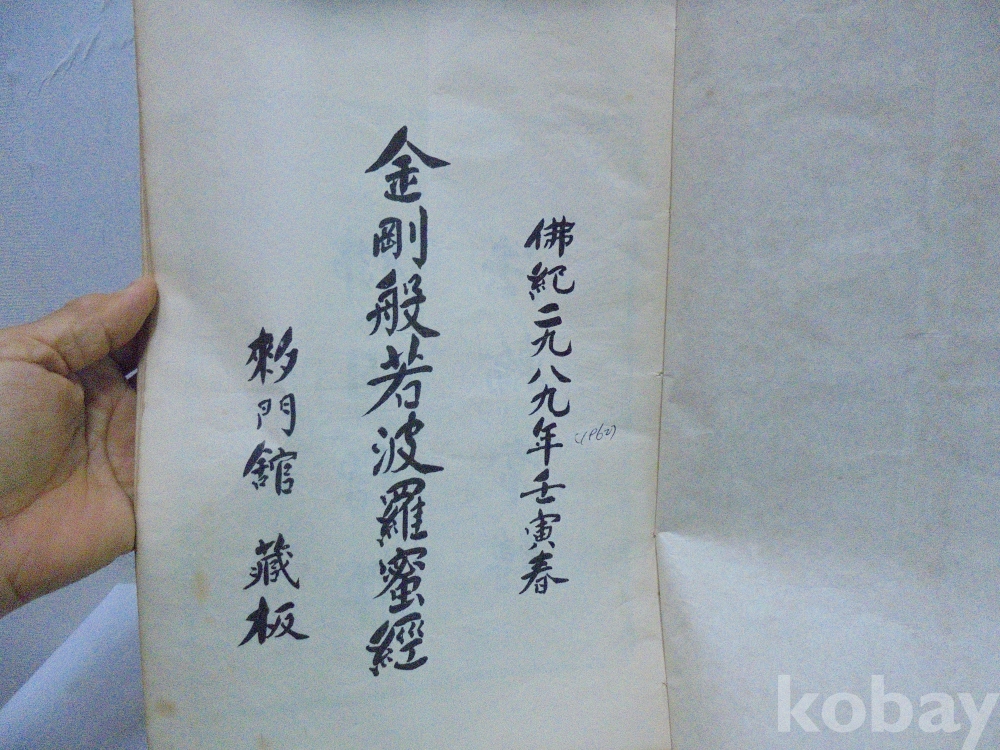 佛紀二九八九年壬寅春
(1962)
金剛般若波羅蜜經
夥門館 藏板
kobay